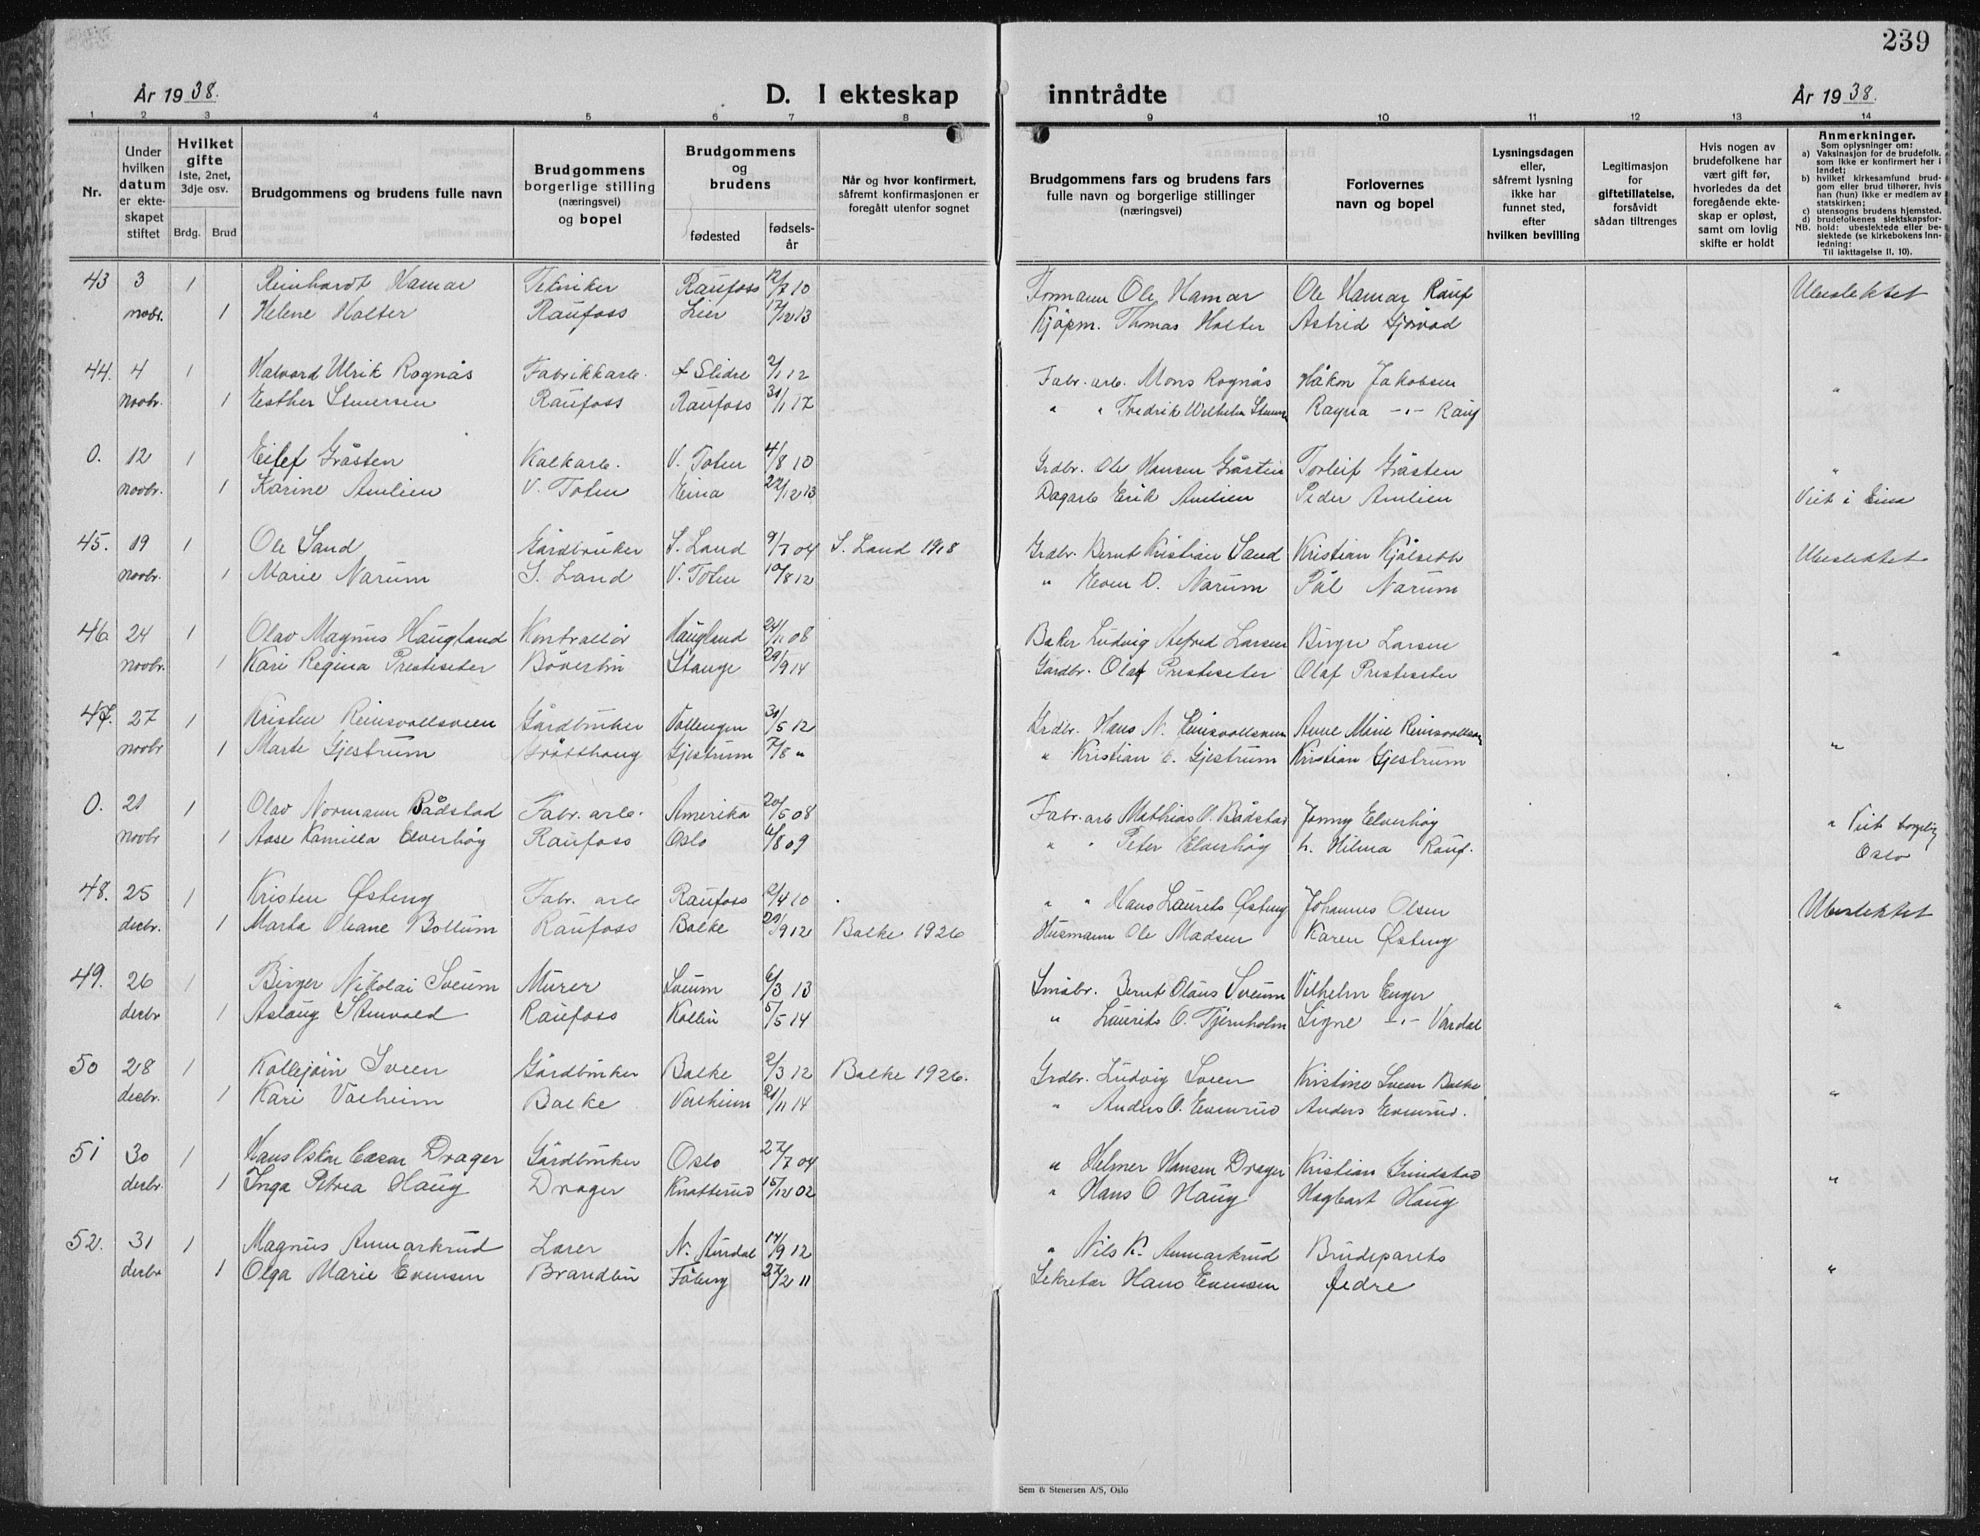 239
År 1938.
D. I ekteskap inntrådte
År 1938.
1 2 3 4 5 6 7 8 9 10 11 12 13 14
Nr.
Under hvilken datum er ekteskapet stiftet
Hvilket gifte 1ste, 2net, 3dje osv.
Brdg. Brud
Brudgommens og brudens fulle navn
Brudgommens borgerlige stilling (næringsvei) og bopel
Brudgommens og brudens
fødested
fødselsår
Når og hvor konfirmert, såfremt konfirmasjonen er foregått utenfor sognet
Brudgommens fars og brudens fars fulle navn og borgerlige stillinger (næringsvei)
Forlovernes navn og bopel
Lysningsdagen eller, såfremt lysning ikke har funnet sted, efter hvilken bevilling
Legitimasjon for giftetillatelse, forsåvidt sådan tiltrenges
Hvis nogen av brudefolkene har vært gift før, hvorledes da det foregående ekteskap er opløst, samt om lovlig skifte er holdt
Anmerkninger.
Som oplysninger om:
a) Vaksinasjon for de brudefolk. som ikke er konfirmert her i landet;
b) hvilket kirkesamfund brudgom eller brud tilhører, hvis han (hun) ikke er medlem av statskirken;
c) utensogns brudens hjemsted.
d) brudefolkenes slektskapsforhold: ubeslektede eller beslektede (se kirkebokens Innledning:
NB.
Til iakttagelse II. 10).
43 3 1 Reinhardt Hamar Tekniker Raufoss 12/7 10 Formann Ole Hamar Ole Hamar Rauf Ubeslektet
novbr. 1 Helene Holter Raufoss Lier 17/12 13 Kjøpm. Thomas Holter Astrid Gjøvad
44. 4 1 Halvard Ulrik Rognås Fabrikkarb. Slidre 2/1 12 Fabr. arb. Mons Rognås Håkon Jakobsen "
novbr. 1 Esther Stuersen Raufoss Raufoss 31/1 17 " " Fredrik Wilhelm Ragna -"- Rauf
0. 12 1 Eilef Gråsten Kalkarb. V. Toten 4/8 10 Grdbr. Ole Hansen Gråsten Torleif Gråsten "
novbr. 1 Karine Amlien V. Toten Eina 22/12 13 Dagarb Erik Amlien Peder Amlien Viet i Eina
45. 19 1 Ole Sand Gårdbruker S. Land 9/7 04 S. Land 1918 Grdbr. Bernt Kristian Sand Kristian Ubeslektet
novbr. 1 Marie Narum S. Land V. Toten 10/8 12 " Even O. Narum Pål Narum
46. 24 1 Olav Magnus Haugland Kontrollør Haugland 24/11 08 Baker Ludvig Alfred Larsen Birger Larsen "
novbr. 1 Kari Regina Presteseter Bøverbru Stange 29/9 14 Gårdbr. Olaf Presteseter Olaf Presteseter
47. 27 1 Kristen Reinsvollsveen Gårdbruker Vollengen 31/5 12 Grdbr. Hans N. Reinsvollsveen Anne Marie Reinsvollsveen "
novbr 1 Marte Gjestrum Gjestrum 7/8 " " Kristian E. Gjestrum Kristian Gjestrum
0. 21 1 Olav Normann Bådstad Fabr. arb. Amerika 20/5 08 Fabr. arb Mathias O. Bådstad Jenny Elverhøy " Viet borgerlig
novbr 1 Aase Kamilla Elverhøy Raufoss Oslo 6/8 09 " " Peter Elverhøy L. Hilma Rauf. Oslo
48. 25 1 Kristen Østeng Fabr. arb Raufoss 2/4 10 " " Hans Laurets Østeng Johannes Olsen Ubeslektet
decbr. 1 Marta Oleane Bollum Raufoss Balke 20/9 12 Balke 1926 Husmann Ole Madsen Karen Østeng
49. 26 1 Birger Nikolai Sveum Murer Sveum 6/3 13 Småbr. Bernt Olaus Sveum Vilhelm Enger "
decbr 1 Aslaug Stenvold Raufoss Kolbu 5/5 14 " Laurits O. Tjernholm Signe -"- Vardal
50 28 1 Kollejøin Sveen Gårdbruker Balke 2/3 12 Balke 1926. Grdbr. Ludvig Sveen Kristine Sveen Balke "
decbr. 1 Kari Valheim Balke Valheim 21/11 14 " Anders O. Evenrud Anders Evenrud.
51 30 1 Hans Oskar Cæsar Drager Gårdbruker Oslo 27/7 04 " Helmer Hansen Drager Kristian Grindstad "
decbr. 1 Inga Petrea Haug Drager Knatterud 15/12 02 " Hans O Haug Hagbart Haug
52. 31 1 Magnus Aunmarkrud Lærer N. Aurdal 14/9 12 " Nils K. Aunmarkrud Brudeparets "
decbr 1 Olga Marie Evensen Brandbu Fåberg 27/2 11 Sekretær Hans Evensen Fedre
Sem & Stenersen A/S, Oslo